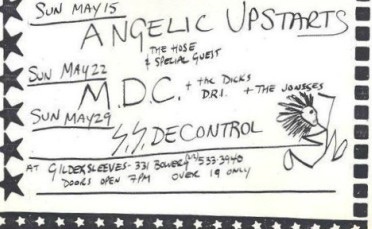 SUN MAY 15
ANGELIC UPSTARTS
THE HOSE
& SPECIAL GUEST
SUN MAY 22
M.D.C. + the DICKS
D.R.I. + THE JONESES
SUN MAY 29
S.S. DECONTROL
AT GILDERSLEEVES - 331 BOWERY (212) 533-3940
DOORS OPEN 7PM OVER 19 ONLY